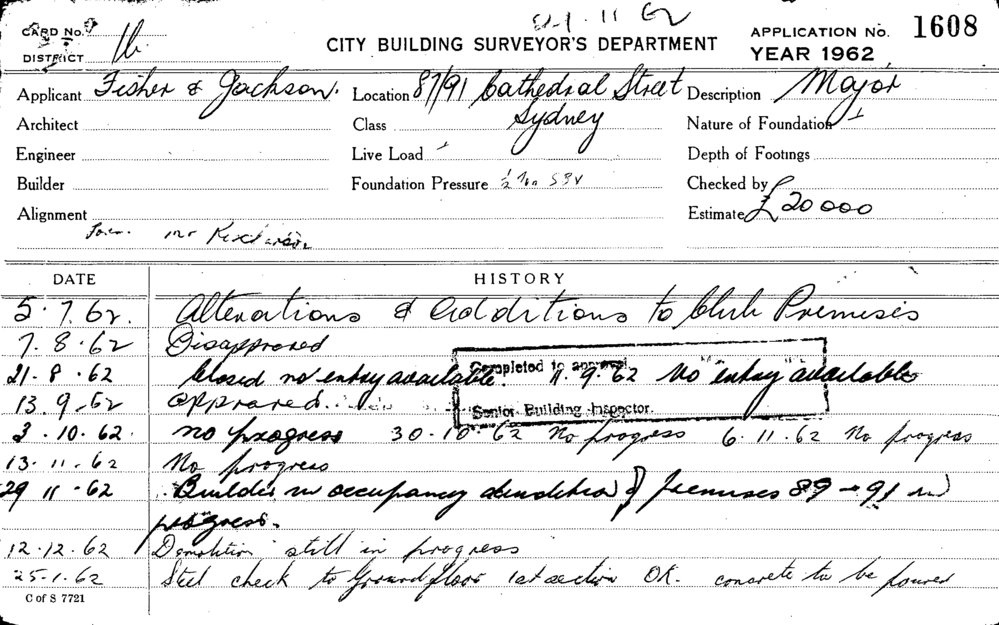 CARD No. 9
DISTRICT
CITY BUILDING SURVEYOR'S DEPARTMENT
11 62
APPLICATION No. 1608
YEAR 1962
Applicant Fisher & Jackson. Location 87/91 Cathedral Street Description Major
Architect Class Sydney Nature of Foundation
Engineer Live Load Depth of Footings
Builder Foundation Pressure Checked by
Alignment Estimate £20000
Mr
DATE HISTORY
5.7.62. Alterations & Additions to Club Premises
7.8.62 Disapproved
21.8.62 Closed no entry available. 11.9.62 No entry available
Completed to approval
13.9.62 Approved.
Senior Building Inspector.
3.10.62. no progress 30.10.62 No progress 6.11.62 No progress
13.11.62 No progress
29 11.62 Builder in occupancy demolition of premises 89 - 91 in
progress.
12.12.62 Demolition still in progress
25.1.62 Steel check to Ground floor 1st section OK. concrete to be poured
C of S 7721